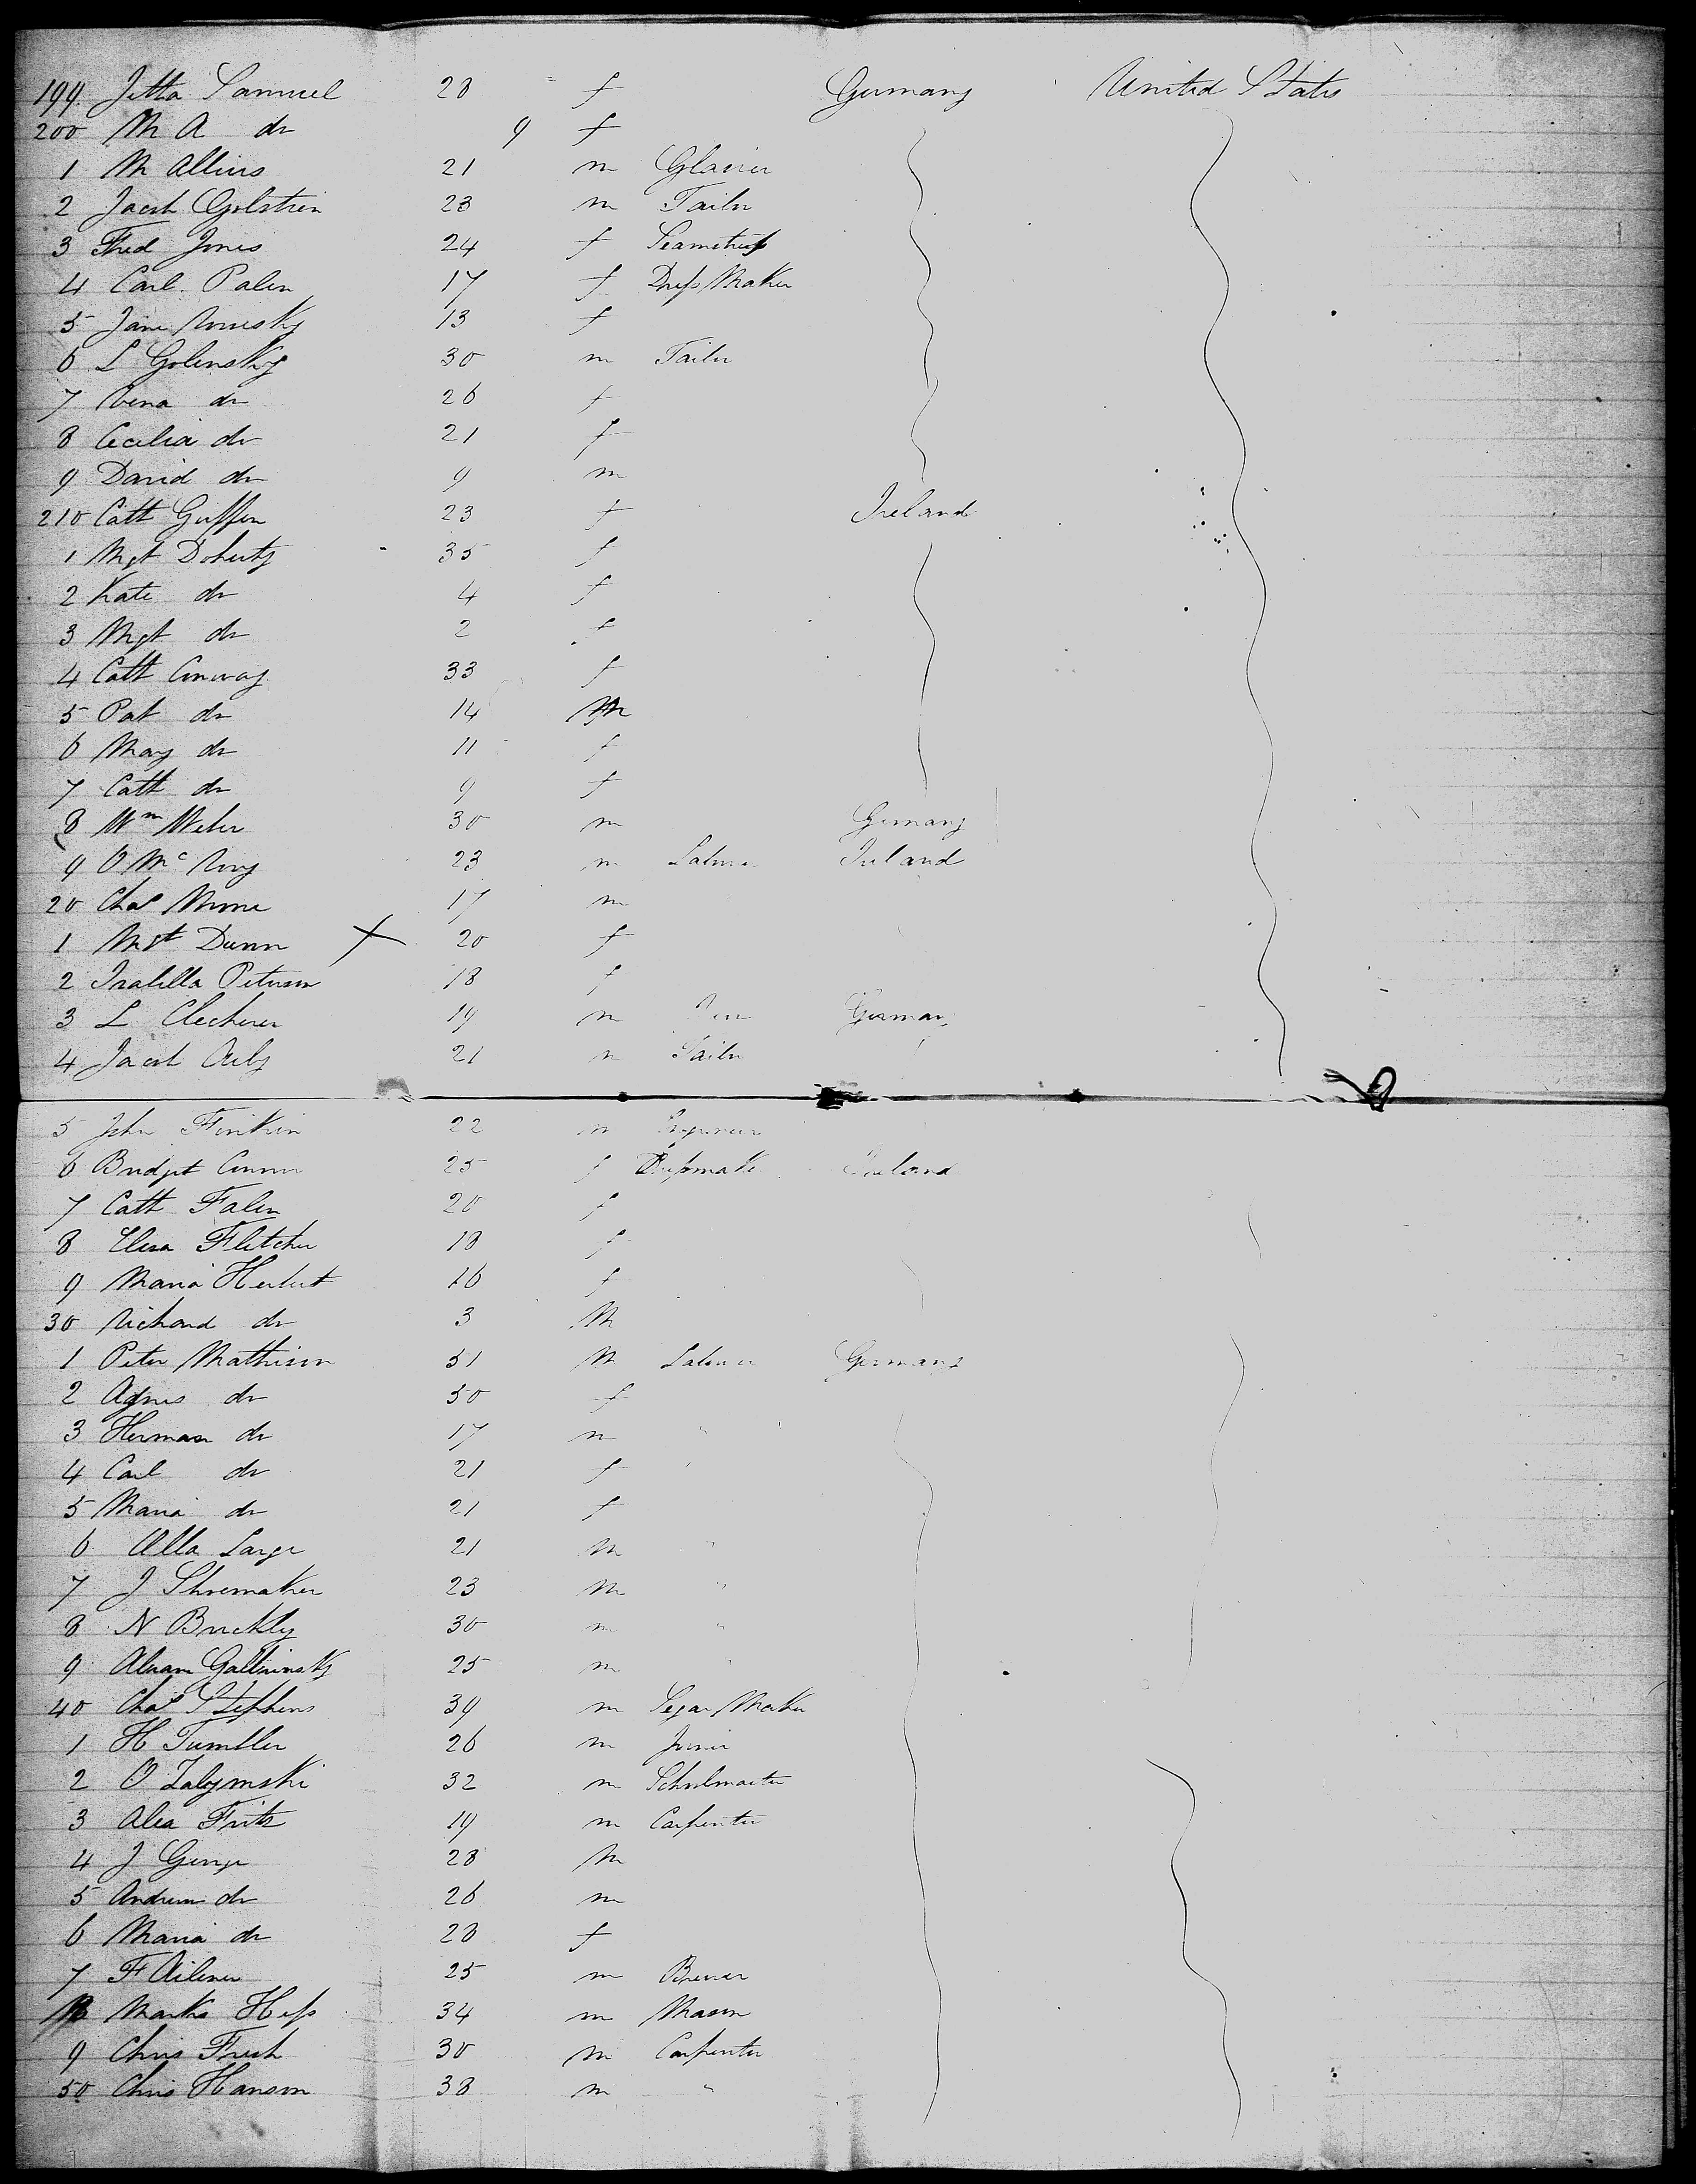 199. Jetta Samuel 28 f Germany United States
200 M A do 9 f
1 M Allins 21 m Glazier
2 Jacob Golstein 23 m Tailor
3 Fred Jones 24 f Seamstress
4 Carl. Palen 17 f Dress Maker
5 Jane 13 f
6 L Golensky 30 m Tailor
7 Rena do 26 f
8 Cecilia do 21 f
9 David do 9 m
210 Cath Griffen 23 f Ireland
1 Mgt Doherty 35 f
2 Kate do 4 f
3 Mgt do 2 f
4 Cath Conway 33 f
5 Pat do 14 M
6 Mary do 11 f
7 Cath do 9 f
8 Wm Weber 30 m Germany
9 O Mc Roy 23 m Laborer Ireland
20 Chas Moore 17 m
1 Mgt Dunn X 20 f
2 Isabella Peterson 18 f
3 L Clecherer 19 m Germany
4 Jacob 21 m Tailor
5 John Finkin 22 m Engineer
6 Bridget Connor 25 f Dressmaker Ireland
7 Cath Falen 20 f
8 Eliza Fletcher 18 f
9 Maria Herbert 26 f
30 Richard do 3 M
1 Peter Mathison 51 M Laborer Germany
2 Agnes do 50 f
3 Herman do 17 m "
4 Carl do 21 f "
5 Maria do 21 f
6 Large 21 m "
7 J Shoemaker 23 m "
8 N Buckly 30 m "
9 Abram Gallwinsky 25 m "
40 Chas Stephens 39 m Segar Maker
1 H Tumbler 26 m Joiner
2 O Zalymski 32 m Schoolmaster
3 Alex Fritz 19 m Carpenter
4 J George 28 M
5 Andrew do 26 m
6 Maria do 28 f
7 F Ailener 25 m Brewer
8 Marks Hess 34 m Mason
9 Chris Fresh 30 m Carpenter
50 Chris Hanson 38 m "